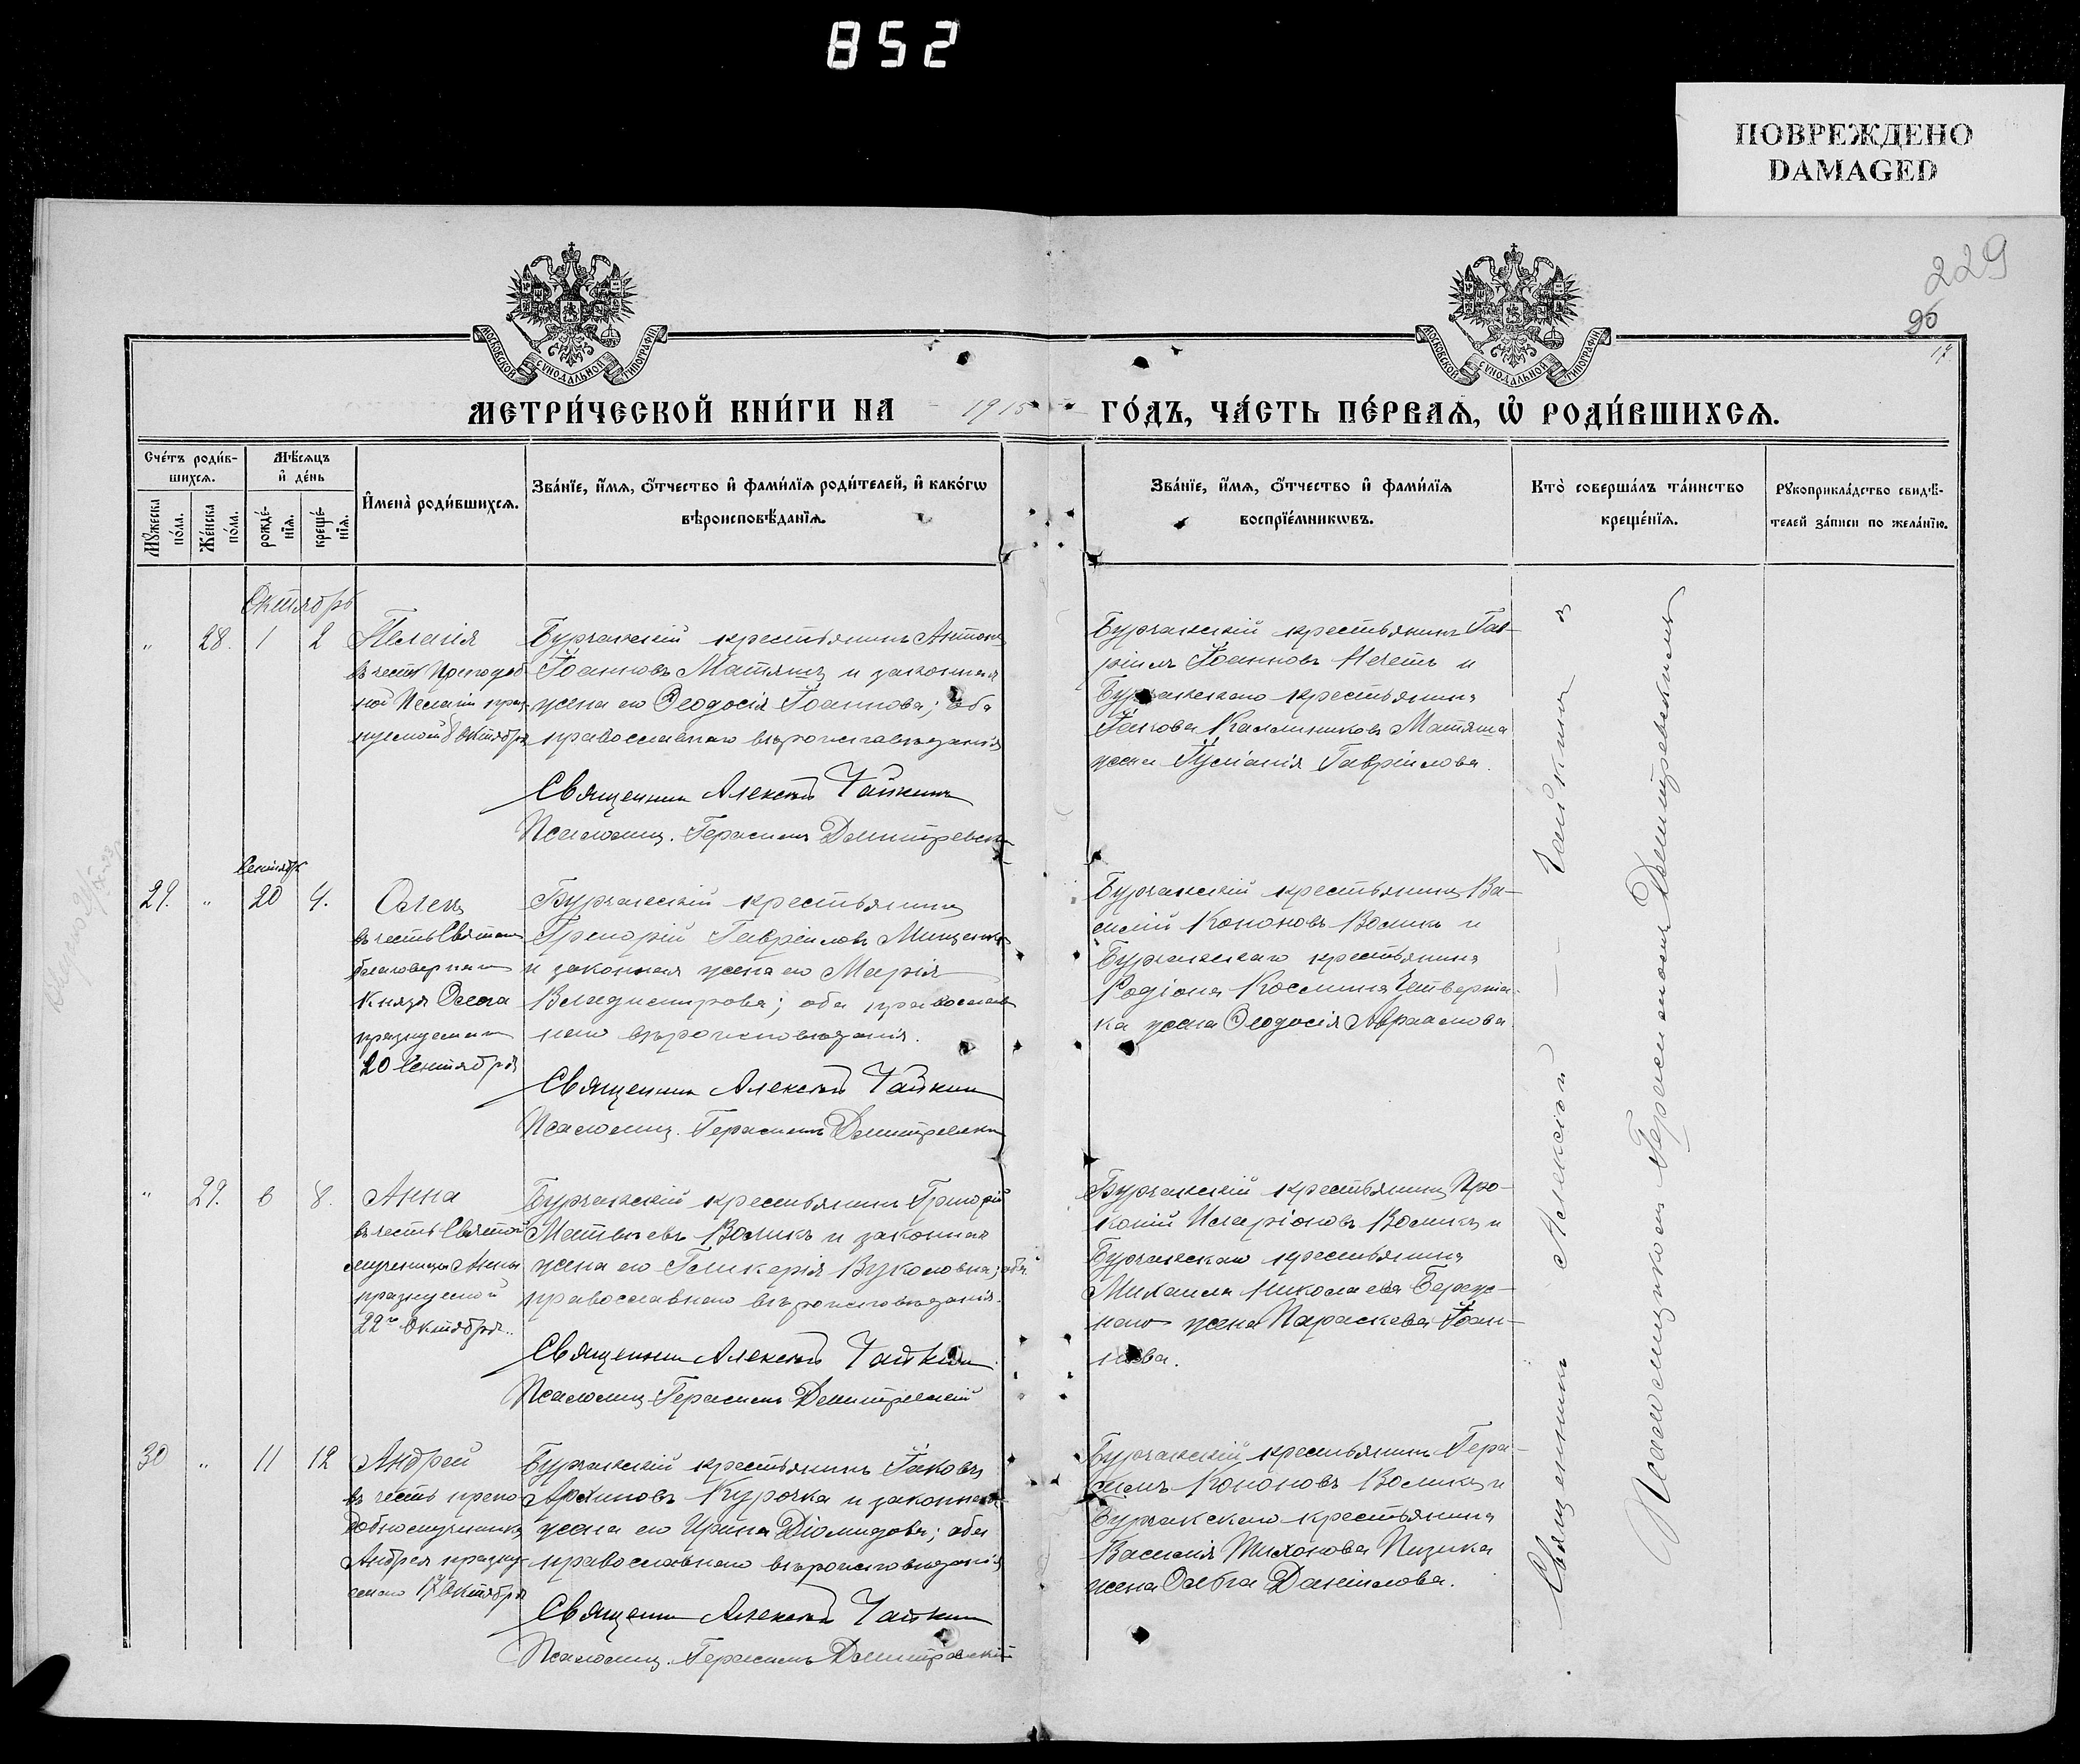 852
ПОВРЕЖДЕНО
DAMAGED
229
95
МОСКОВСКОЙ СѴНОДАЛЬНОЙ ТИПОГРАФІИ
МОСКОВСКОЙ СѴНОДАЛЬНОЙ ТИПОГРАФІИ
МЕТРИ́ЧЕСКОЙ КНИ́ГИ НА 1915 ГО́ДЪ, ЧА́СТЬ ПЕ́РВАѦ, Ѡ҆ РОДИ́ВШИХСѦ.
Сче́тъ роди́в-
шихсѧ.
Мѣ́сѧцъ
и҆ де́нь
Мꙋ́жеска
по́ла.
Же́нска
по́ла.
рожде́-
нїѧ.
креще́-
нїѧ.
И҆мена̀ роди́вшихсѧ.
Зва́нїе, и҆́мѧ, ѻ҆́тчество и҆ фами́лїѧ роди́телей, и҆ како́гѡ
вѣроисповѣ́данїѧ.
Зва́нїе, и҆́мѧ, ѻ҆́тчество и҆ фами́лїѧ
воспрїе́мникѡвъ.
Кто̀ соверша́лъ та́инство
креще́нїѧ.
Рꙋкоприкла́дство свидѣ́-
телей за́писи по жела́нїю.
Октябрь
" 28. 1 2 Пелагія
въ честь Преподоб-
ной Пелагіи празд-
нуемой 8 Октября
Бурчакскій крестьянинъ Антонъ
Іоанновъ Матяшъ и законная
жена его Ѳеодосія Іоаннова; оба
православнаго вѣроисповѣданія
Священник Алексѣй Чайкинъ
Псаломщ. Герасимъ Димитревск
Бурчакскій крестьянинъ Гав-
ріилъ Іоанновъ и
Бурчакскаго крестьянина
Іакова Каллиникова Матяша
жена Гавріилова.
Сентябрь
29. " 20 4. Олегъ
въ честь Святаго
благовернаго
Князя Олега
празднуемаго
20 Сентября
Бурчакскій крестьянинъ
Григорій Гавріиловъ Мищенко
и законная жена его Марія
Владимирова; оба православ
наго вѣроисповѣданія.
Священник Алексѣй Чайкин
Псаломщ. Герасимъ Димитревски
Бурчакскій крестьянинъ Ва-
силій Кононовъ Воликъ и
Бурчакскаго крестьянина
Родіона Космина Четверта-
ка жена Ѳеодосія Авраамова
" 29. 6 8. Анна
въ честь Святой
мученицы Анны
празднуемой
22го Октября.
Бурчакскій крестьянинъ Григорій
Матвѣевъ Воликъ и законная
жена его Гликерія Вуколовна; оба
православнаго вѣроисповѣданія.
Священник Алексѣй Чайкин
Псаломщ. Герасимъ Димитревскій
Бурчакскій крестьянинъ Про-
копій Иларіоновъ Воликъ и
Бурчакскаго крестьянина
Михаила Николаева Береж-
наго жена Параскева Іоан-
нова.
30 " 11 12 Андрей
въ честь препо-
добномученика
Андрея праздну-
емаго 17 Октября
Бурчакскій крестьянинъ Іаковъ
Архиповъ Курочка и законная
жена его Ирина Діомидова; оба
православнаго вѣроисповѣданія
Священник Алексѣй Чайкин
Псаломщ. Герасимъ Димитревскій
Бурчакскій крестьянинъ Гера-
симъ Кононовъ Воликъ и
Бурчакскаго крестьянина
Василія Тихонова Пизика
жена Ольга Даніилова.
Священникъ Алексій Чайкинъ и
Псаломщикомъ Герасимомъ Димитревскимъ